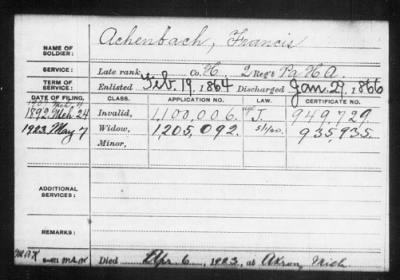 Achenbach, Francis
NAME OF SOLDIER:
SERVICE: Late rank Co. H. 2 Reg't Pa H A.
TERM OF SERVICE: Enlisted Feb. 19, 1864 Discharged Jan. 29, 1866
DATE OF FILING. CLASS. APPLICATION NO. LAW. CERTIFICATE NO.
1892 Mch 24 Invalid, 1,100,006. J. 949,729.
1923 May 7 Widow, 1,205,092. 935,935.
Minor,
ADDITIONAL SERVICES:
REMARKS:
Died Apr. 6, 1923, at Akron, Mich